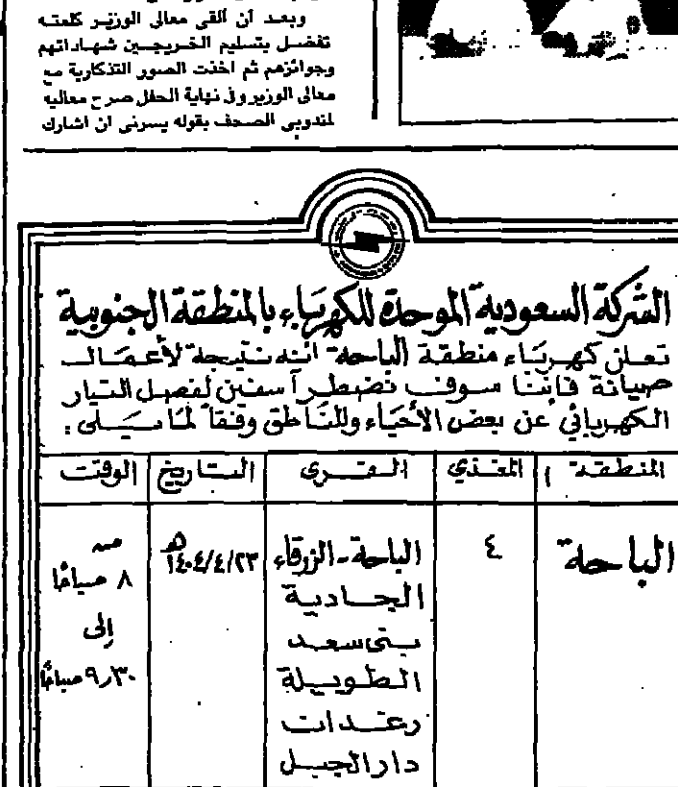 وبعد أن القى معالى الوزير كلمته
تفضل بتسليم الخريجين شهاداتهم
وجوائزهم ثم اخذت الصور التذكارية مع
معالى الوزير وفى نهاية الحفل صرح معاليه
لمندوبى الصحف بقوله يسرنى ان اشارك
الشركة السعودية الموحدة للكهرباء بالمنطقة الجنوبية
تعلن كهرباء منطقة الباحة انه نتيجة لأعمال
صيانة فاننا سوف نضطر آسفين لفصل التيار
الكهربائي عن بعض الأحياء والمناطق وفقاً لما يلى :
المنطقة المغذي القرى التاريخ الوقت
الباحة ٤ الباحة - الزرقاء ١٤٠٤/٤/٢٣هـ من
٨ صباحًا
الجادية
إلى
بنى سعد
٩٫٣٠ صباحًا
الطويلة
رغدات
دار الجبل